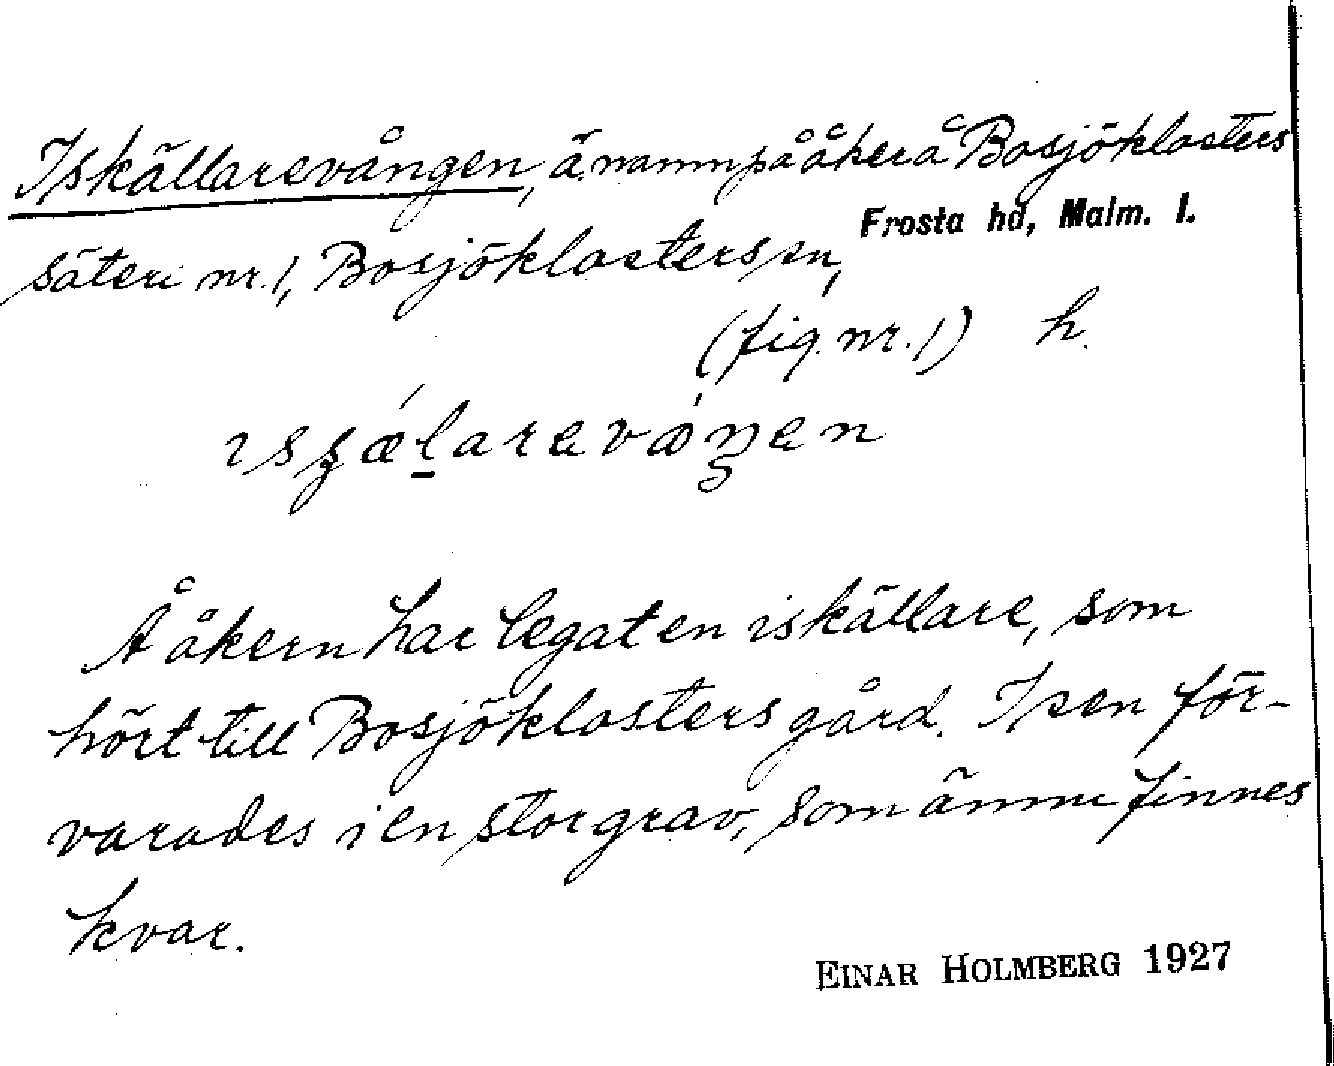 Iskällarevången, ä. namn på åker å Bosjöklosters
Frosta hd, Malm. l.
säteri nr. 1, Bosjöklosters sn,
(fig. nr. 1) h.
Å åkern har legat en iskällare, som
hört till Bosjöklosters gård. Isen för-
varades i en stor grav, som ännu finnes
kvar.
EINAR HOLMBERG 1927